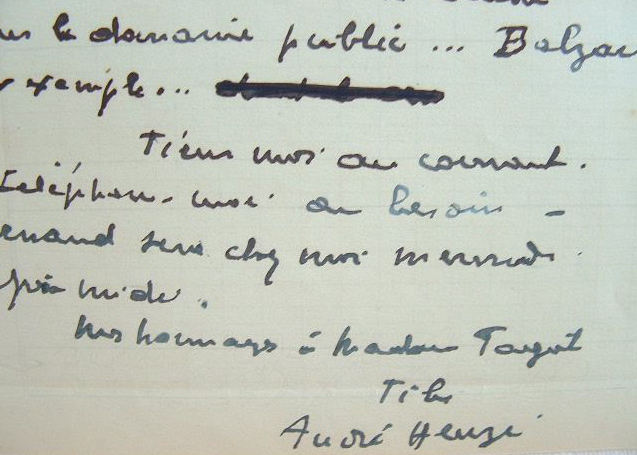 le domaine public ... Balzac
exemple...
Tiens moi au courant.
Téléphone-moi au besoin -
sera chez moi mercredi
midi.
Mes hommages à Madame Target
André Heuzé